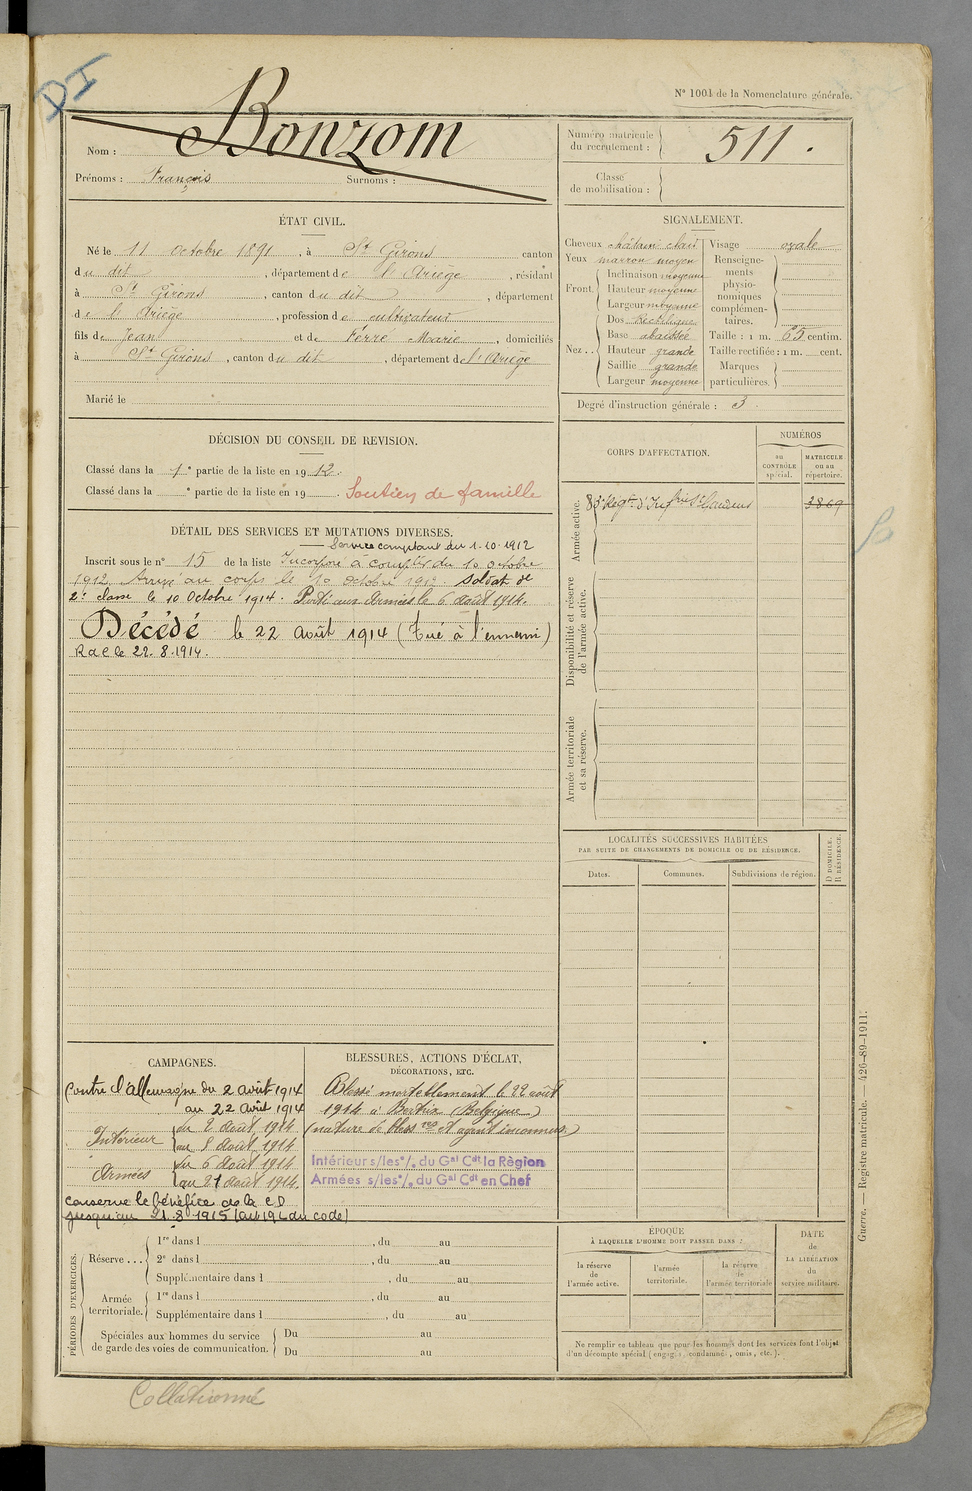 DI
N° 1001 de la Nomenclature générale.
Nom : Bonzom
Prénoms : François Surnoms :
Numéro matricule du recrutement : 511.
Classe de mobilisation :
ÉTAT CIVIL.
Né le 11 Octobre 1891, à St Girons canton
du dit, département de l'Ariège, résidant
à St Girons, canton du dit, département
de l'Ariège, profession de cultivateur
fils de Jean et de Ferré Marie, domiciliés
à St Girons, canton du dit, département de l'Ariège
Marié le
SIGNALEMENT.
Cheveux châtain clair
Yeux marron moyen
Front. Inclinaison moyenne
Hauteur moyenne
Largeur moyenne
Nez .. Dos Rectiligne
Base abaissée
Hauteur grande
Saillie grande
Largeur moyenne
Visage ovale
Renseignements physionomiques complémentaires.
Taille : 1 m. 65 centim.
Taille rectifiée : 1 m. cent.
Marques particulières.
Degré d'instruction générale : 3.
DÉCISION DU CONSEIL DE REVISION.
Classé dans la 1e partie de la liste en 1912.
Classé dans la e partie de la liste en 19 Soutien de famille
DÉTAIL DES SERVICES ET MUTATIONS DIVERSES.
Service comptant du 1.10.1912
Inscrit sous le n° 15 de la liste Incorporé à compter du 10 octobre
1912. Arrivé au corps le 10 octobre 1912. Soldat de
2e classe le 10 Octobre 1914. Parti aux Armées le 6 août 1914.
Décédé le 22 août 1914 (Tué à l'ennemi)
R d C le 22.8.1914.
CORPS D'AFFECTATION.
NUMÉROS
au CONTRÔLE spécial.
MATRICULE ou au répertoire.
Armée active.
83e Régt. d'Infrie St Gaudens 3869
Disponibilité et réserve de l'armée active.
Armée territoriale et sa réserve.
LOCALITÉS SUCCESSIVES HABITÉES
PAR SUITE DE CHANGEMENTS DE DOMICILE OU DE RÉSIDENCE.
Dates.
Communes.
Subdivisions de région.
D DOMICILE. R RÉSIDENCE.
CAMPAGNES.
Contre l'allemagne du 2 août 1914
au 22 août 1914
Intérieur du 2 août 1914
au 5 août 1914
Armées du 6 août 1914
au 21 août 1914.
Conserve le bénéfice de la C D
jusqu'au 21.8 1915 (art 194 du code)
BLESSURES, ACTIONS D'ÉCLAT,
DÉCORATIONS, ETC.
Blessé mortellement le 22 août
1914 à Bertrix (Belgique)
(nature de blessres et agent inconnus)
Intérieur s/les °/. du Gal Cdt la Région
Armées s/les °/. du Gal Cdt en Chef
PÉRIODES D'EXERCICES.
Réserve ...
1re dans l , du au
2e dans l , du au
Supplémentaire dans l , du au
Armée territoriale.
1re dans l , du au
Supplémentaire dans l , du au
Spéciales aux hommes du service de garde des voies de communication.
Du au
Du au
ÉPOQUE
À LAQUELLE L'HOMME DOIT PASSER DANS :
la réserve de l'armée active.
l'armée territoriale.
la réserve de l'armée territoriale
DATE de LA LIBÉRATION du service militaire.
Ne remplir ce tableau que pour les hommes dont les services font l'objet
d'un décompte spécial (engagés, condamnés, omis, etc.).
Guerre. — Registre matricule. — 426-89-1911.
Collationné